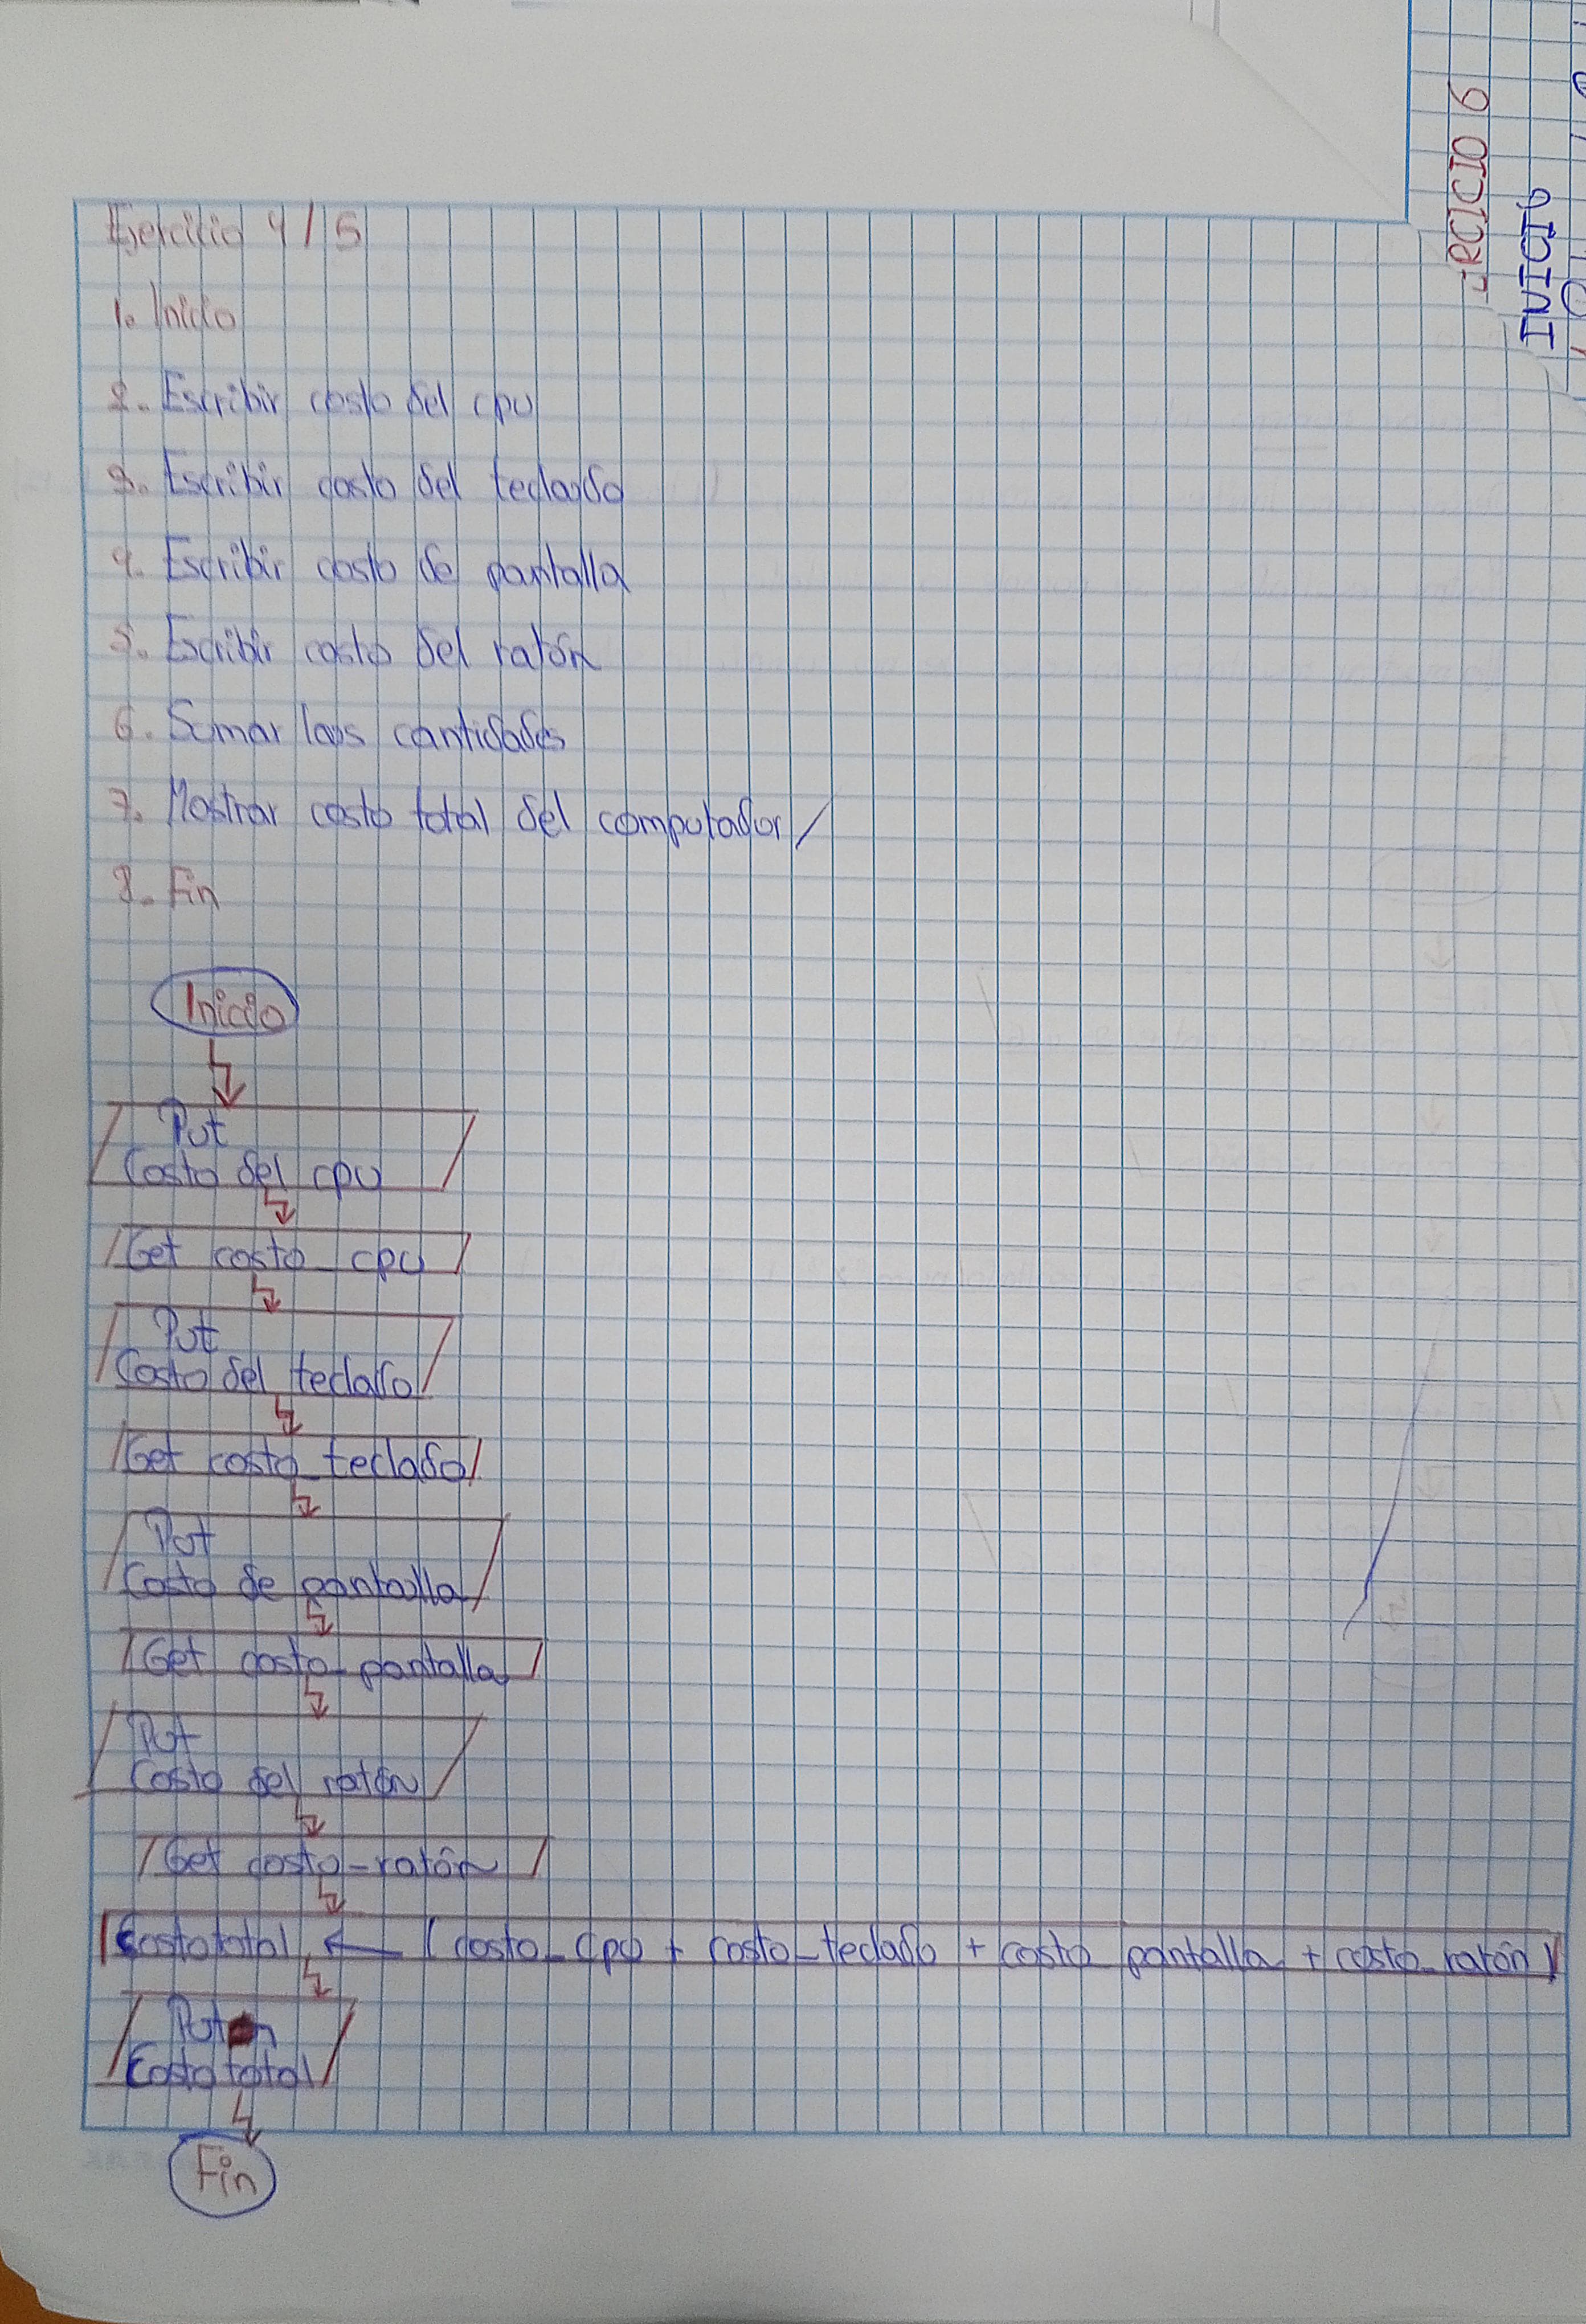 Ejercicio 4/5
1. Inicio
2. Escribir costo del cpu
3. Escribir costo del teclado
4. Escribir costo de pantalla
5. Escribir costo del ratón
6. Sumar las cantidades
7. Mostrar costo total del computador/
8. Fin
Inicio
Put
Costo del cpu
Get costo_cpu
Put
Costo del teclado
Get costo_teclado
Put
Costo de pantalla
Get costo_pantalla
Put
Costo del ratón
Get costo_ratón
Costo total ← (costo_cpu + costo_teclado + costo pantalla + costo_ratón)
Put
Costo total
Fin
RCICIO 6
INICIO